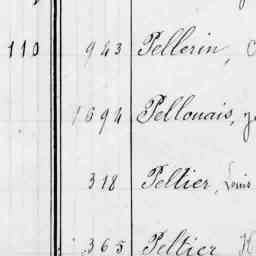 110 943 Pellerin,
1694 Pellouais,
318 Peltier, Louis
365 Peltier